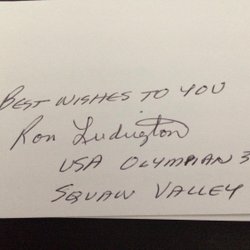 BEST WISHES TO YOU
Ron Ludington
USA OLYMPIAN 3
SQUAW VALLEY